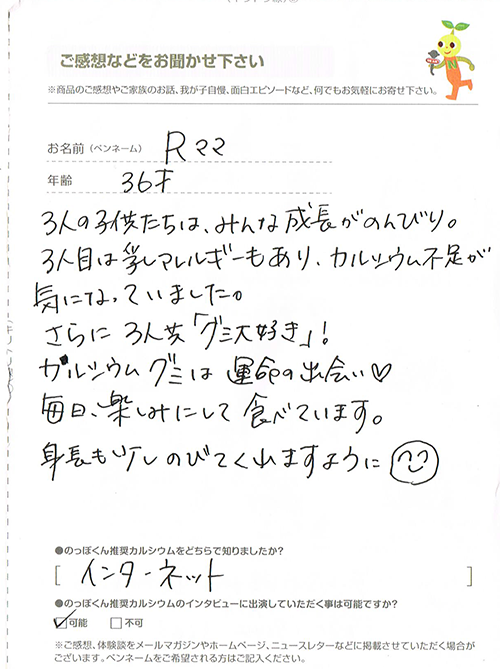 ご感想などをお聞かせ下さい
※商品のご感想やご家族のお話、我が子自慢、面白エピソードなど、何でもお気軽にお寄せ下さい。
お名前（ペンネーム） Rママ
年齢 36才
3人の子供たちは、みんな成長がのんびり。
3人目は乳アレルギーもあり、カルシウム不足が
気になっていました。
さらに3人共「グミ大好き」!
カルシウムグミは運命の出会い♡
毎日、楽しみにして食べています。
身長も少しのびてくれますように
●のっぽくん推奨カルシウムをどちらで知りましたか?
[ インターネット ]
●のっぽくん推奨カルシウムのインタビューに出演していただく事は可能ですか?
☑可能 □不可
※ご感想、体験談をメールマガジンやホームページ、ニュースレターなどに掲載させていただく場合が
ございます。ペンネームをご希望される方はご記入ください。